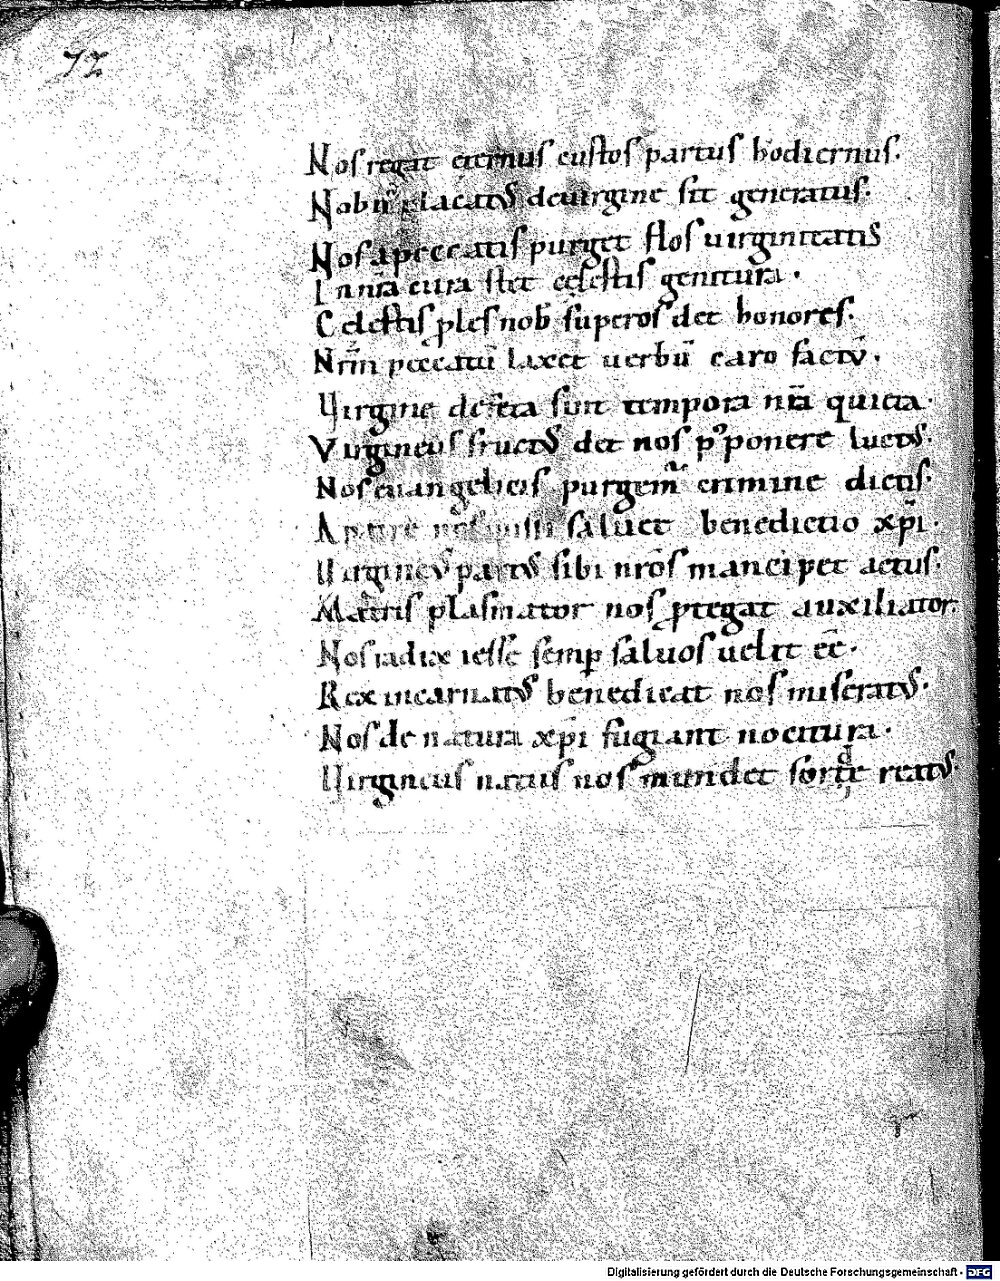 72
Nos regat eternus custos partus hodiernus.
Nob placatus de uirgine sit generatus.
Nos a peccatis purget flos uirginitatis
In nr̄a cura stet cęlestis genitura.
Celestis ꝓles nob̄ suꝑos det honores.
Nrm̄ peccatū laxet uerbū caro factū.
Uirgine sint tempora nr̄a quieta.
Virgineus fructus det nos p᾽ponere luctus.
Nos euangelicis purgem᾽ crimine dictis.
saluet benedictio xp̄i.
Uirgineus partus sibi nr̄os mancipet actus.
Matris plasmator nos ꝓtegat auxiliator.
Nos radix iesse semꝑ saluos uelit ee̅.
Rex incarnatus benedicat nos miseratus.
Nos de natura xp̄i fugiant nocitura.
Uirgineus natus nos mundet sorde reatus.
Digitalisierung gefördert durch die Deutsche Forschungsgemeinschaft - DFG